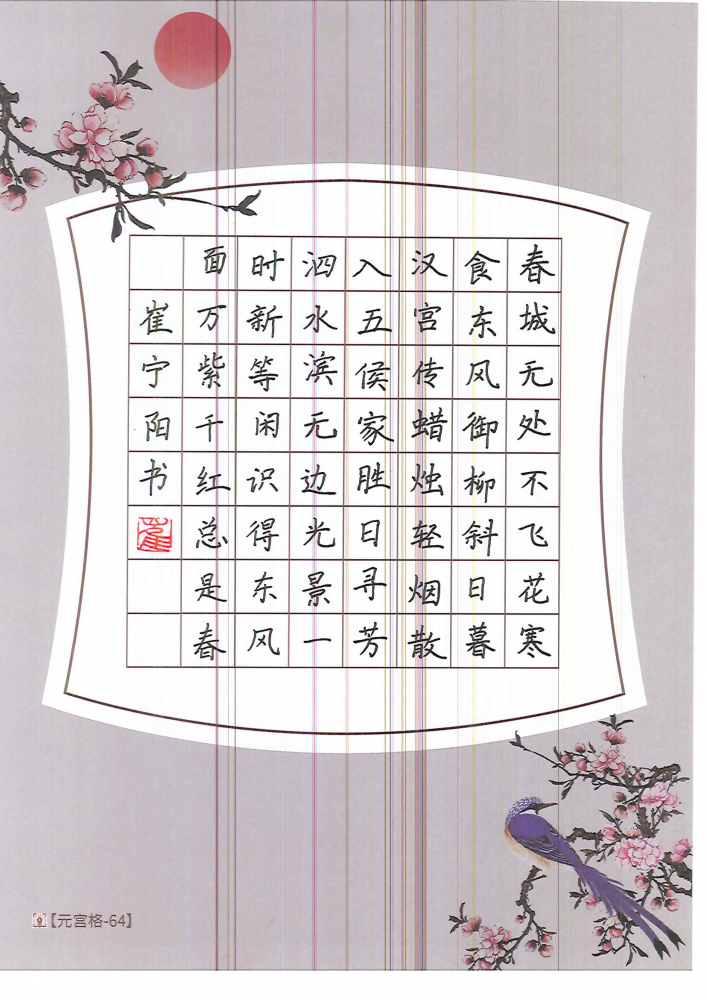 春城无处不飞花寒
食东风御柳斜日暮
汉宫传蜡烛轻烟散
入五侯家胜日寻芳
泗水滨无边光景一
时新等闲识得东风
面万紫千红总是春
崔宁阳书
崔
【元宫格-64】